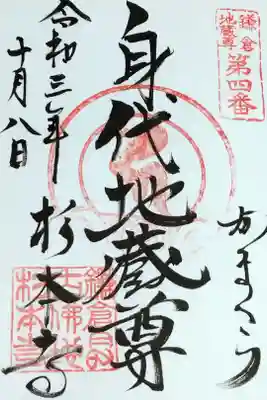 鎌倉
地蔵尊
第四番
かまくら
身代地蔵尊
杉本寺
令和三年
十月八日
鎌倉最
古佛地
杉本寺